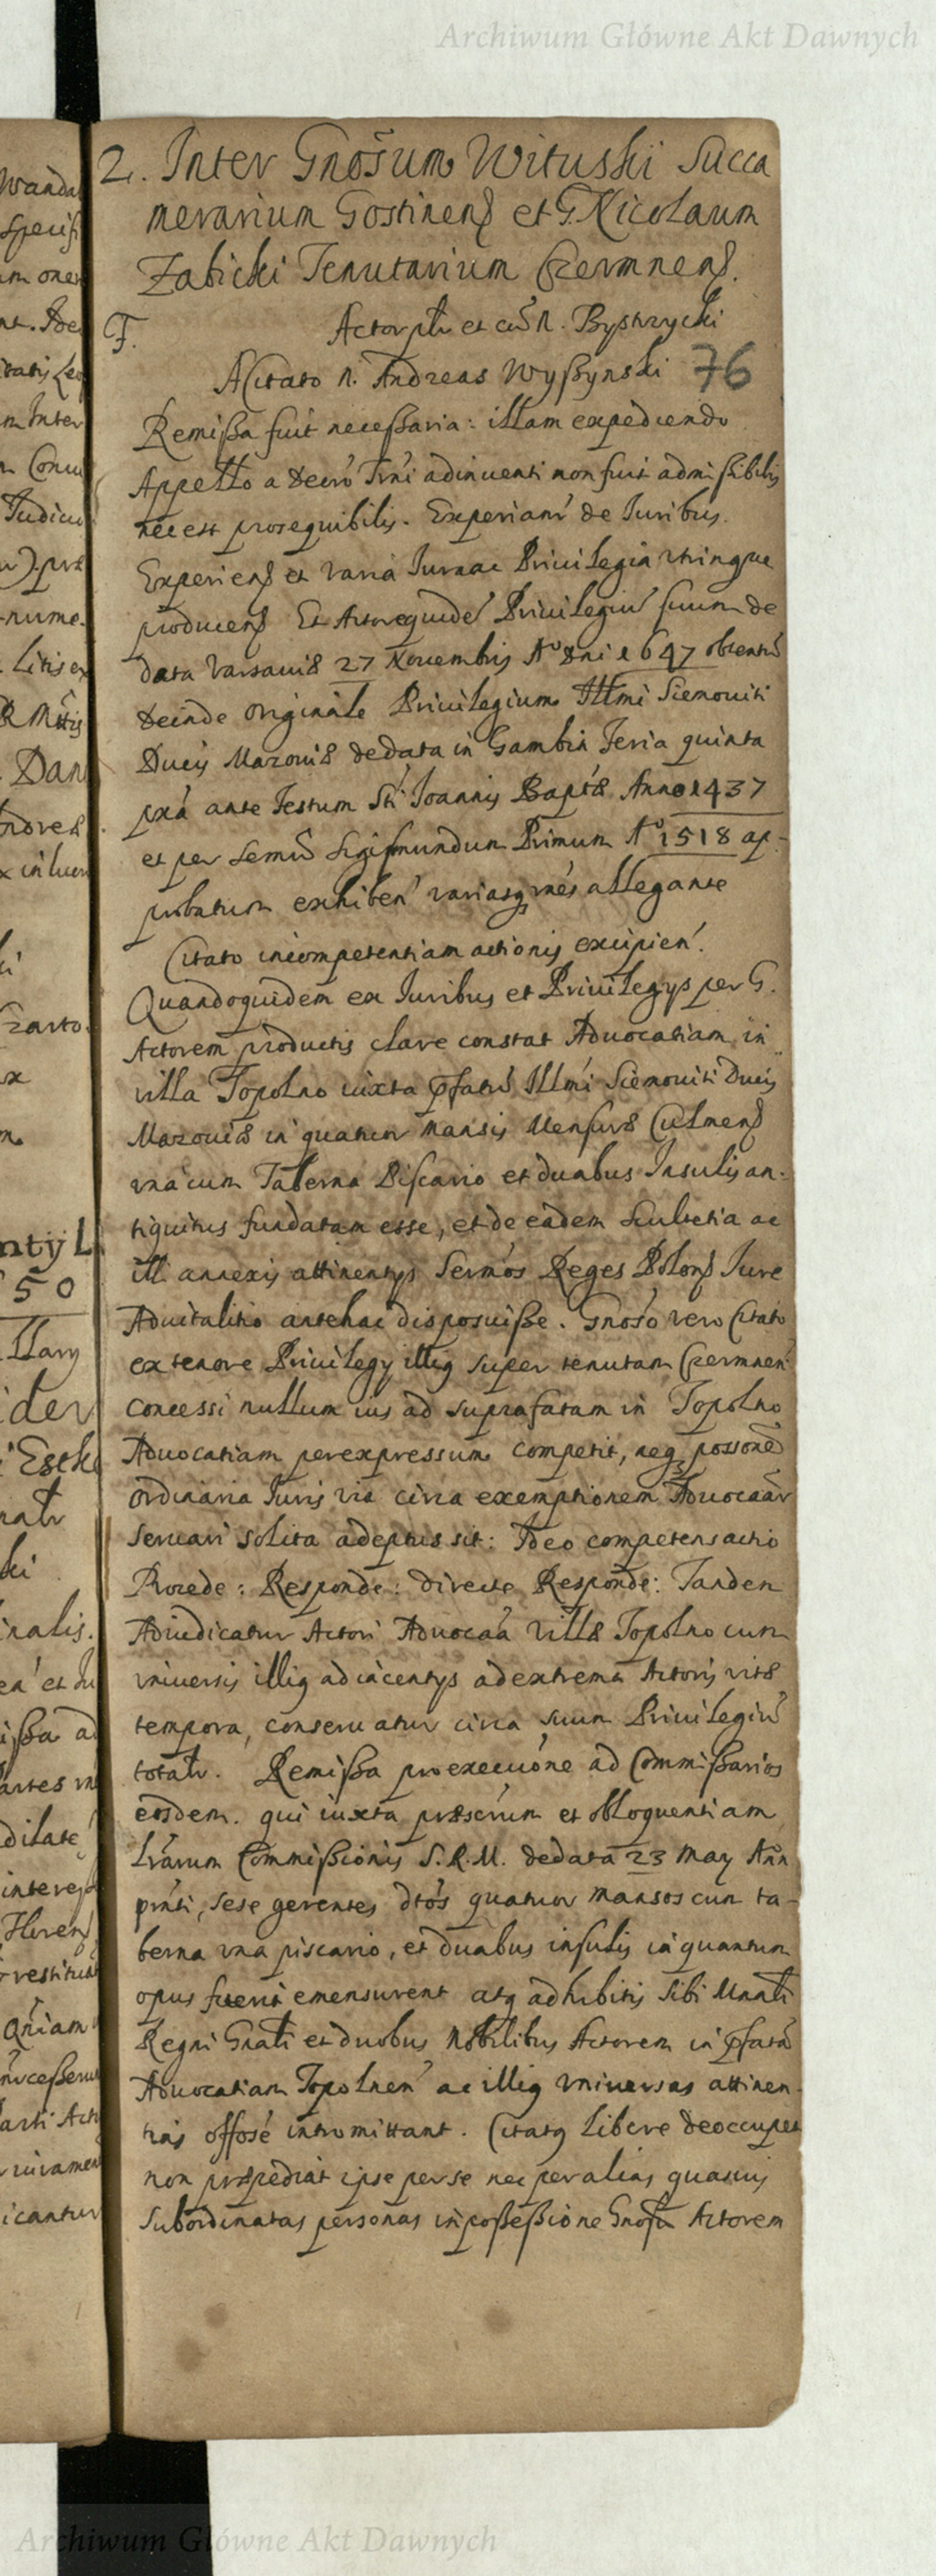 Archiwum Główne Akt Dawnych
2. Inter Gnosum Wituski Succa
merarium Gostinens et G. Nicolaum
Zabicki Tenutarium Czermnens.
F. Actor pls et cu N. Bystrzycki
A Citato N. Andreas Wyßynski 76
Remißa fuit neceßaria: illam expediendo
Appello a decro Trni adinuenti non fuit admißibilis
nec est prosequibilis. Experianr de Iuribus.
Experiens et varia Iura ac Priuilegia vtrinque
producens Et Actore quide Priuilegiu suum de
data Varsauiæ 27 Nouembris A° Dni 1647 obtentu
deinde originale Priuilegium Illmi Siemouiti
Ducis Mazouiæ de data in Gambin Feria quinta
pxa ante Festum Sti Ioannis Baptæ Anno 1437
et per Semu Sigismundum Primum A° 1518 ap-
probatum exhiben variasq nes allegante
Citato incompetentiam actionis excipien.
Quandoquidem ex Iuribus et Priuilegys per G.
Actorem productis clare constat Aduocatiam in
villa Topolno iuxta pfatu Illmi Siemouiti Ducis
Mazouiæ in quatuor mansis Mensuræ Culmens
vna cum Taberna Piscario et duabus Insulis an-
tiquitus fundatam esse, et de eadem Scultetia ac
illi annexis attinentys Sermos Reges Polons Iure
Aduitalitio antehac disposuiße. Gnoso vero Citato
ex tenore Priuilegy illiq super tenutam Czermnen
concessi nullum ius ad suprafatam in Topolno
Aduocatiam per expressum competit, neq possone
ordinaria Iuris via circa exemptionem Aduocaar
seruari solita adeptus sit: Ideo competens actio
Procede: Responde: directe Responde: Tandem
Adiudicatur Actori Aduocaa Villæ Topolno cum
vniuersis illiq adiacentys ad extrema Actoris vitæ
tempora, conseruatur circa suum Priuilegiu
totalr. Remißa pro execuone ad Commißarios
eosdem. qui iuxta præscrum et obloquentiam
Lrarum Commißionis S.R.M. de data 23 May Ann
pnti, sese gerentes, dtos quatuor mansos cum ta-
berna vna piscario, et duabus insulis in quantum
opus fuerit emensurent atq adhibitis sibi Mnali
Regni Gnali et duobus Nobilibus Actorem in pfata
Aduocatiam Topolnen ac illiq vniuersas attinen-
tias offose intromittant. Citatq libere deoccupet
non præpediat ipse per se nec per alias quasuis
subordinatas personas in poßeßione Gnosu Actorem
Archiwum Główne Akt Dawnych